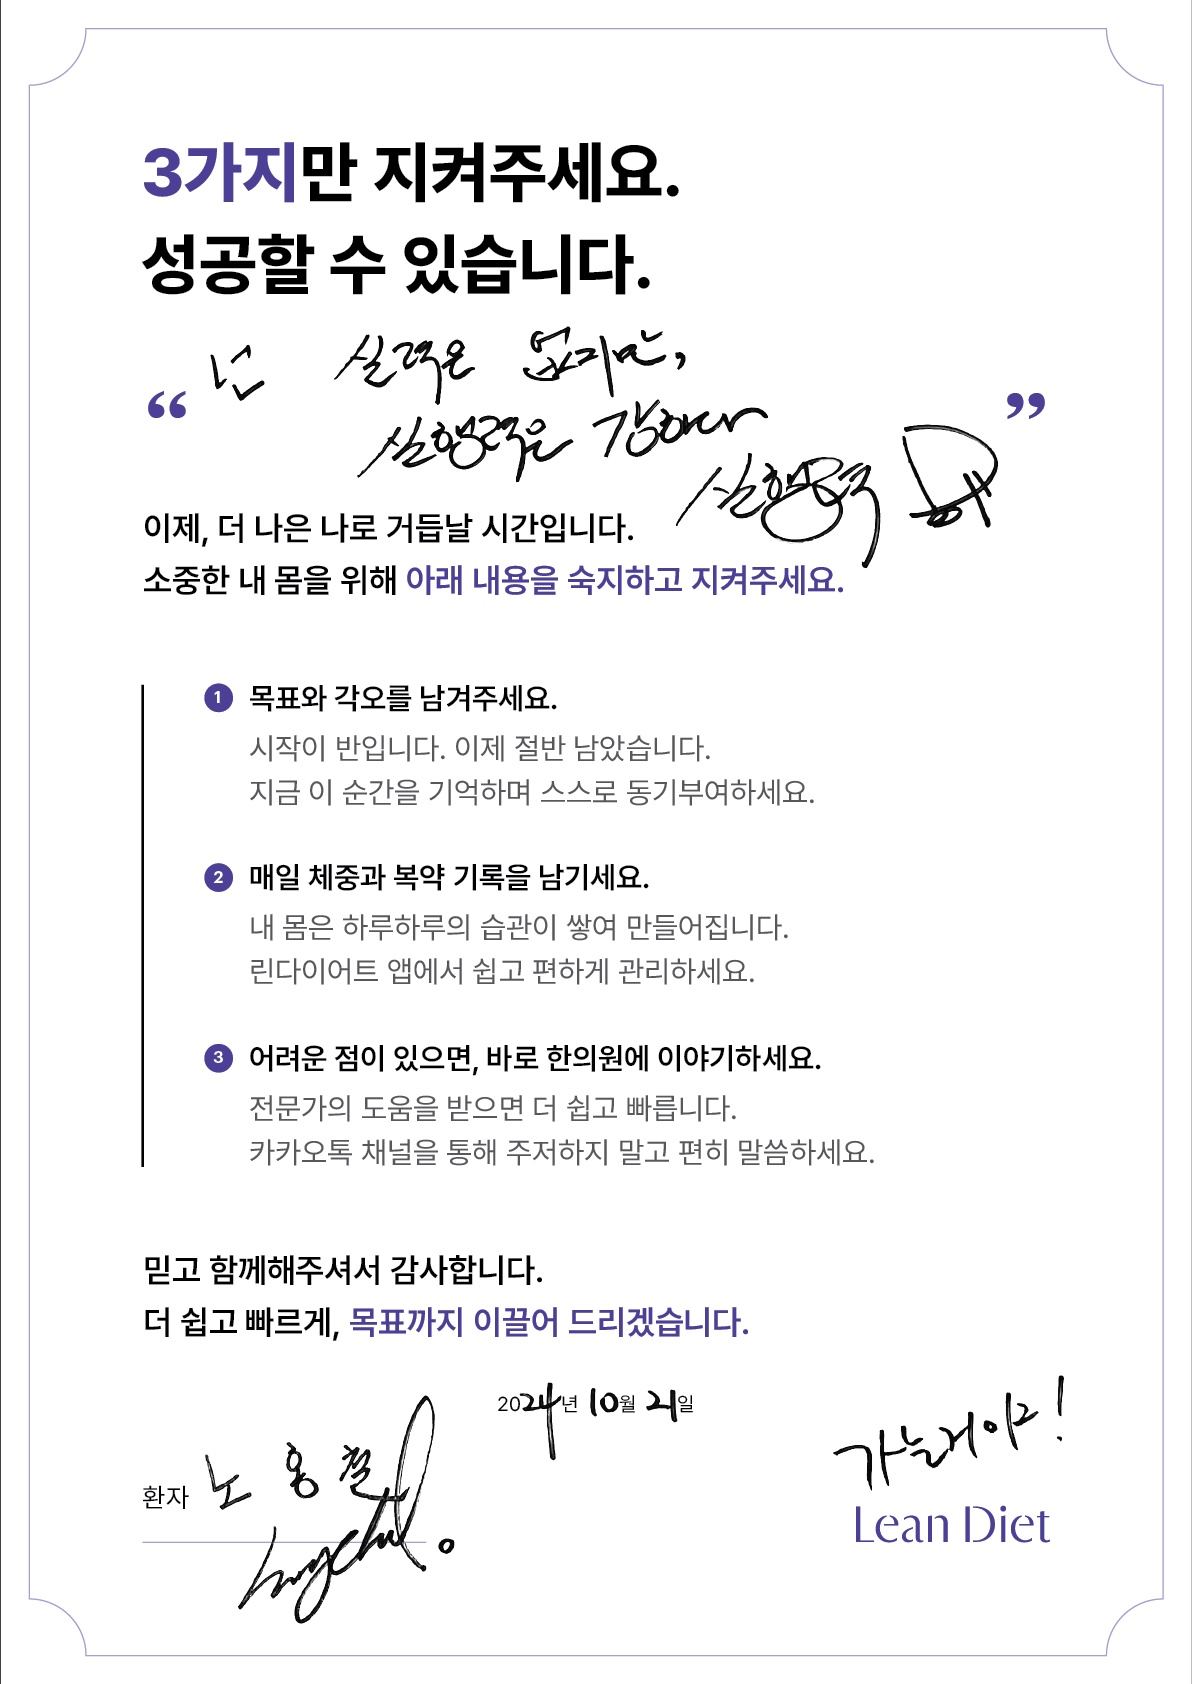 3가지만 지켜주세요.
성공할 수 있습니다.
“ 난 실력은 없지만, ”
실행력은 강하다
이제, 더 나은 나로 거듭날 시간입니다.
소중한 내 몸을 위해 아래 내용을 숙지하고 지켜주세요.
1 목표와 각오를 남겨주세요.
시작이 반입니다. 이제 절반 남았습니다.
지금 이 순간을 기억하며 스스로 동기부여하세요.
2 매일 체중과 복약 기록을 남기세요.
내 몸은 하루하루의 습관이 쌓여 만들어집니다.
린다이어트 앱에서 쉽고 편하게 관리하세요.
3 어려운 점이 있으면, 바로 한의원에 이야기하세요.
전문가의 도움을 받으면 더 쉽고 빠릅니다.
카카오톡 채널을 통해 주저하지 말고 편히 말씀하세요.
믿고 함께해주셔서 감사합니다.
더 쉽고 빠르게, 목표까지 이끌어 드리겠습니다.
2024년 10월 21일
환자 노홍철
Lean Diet